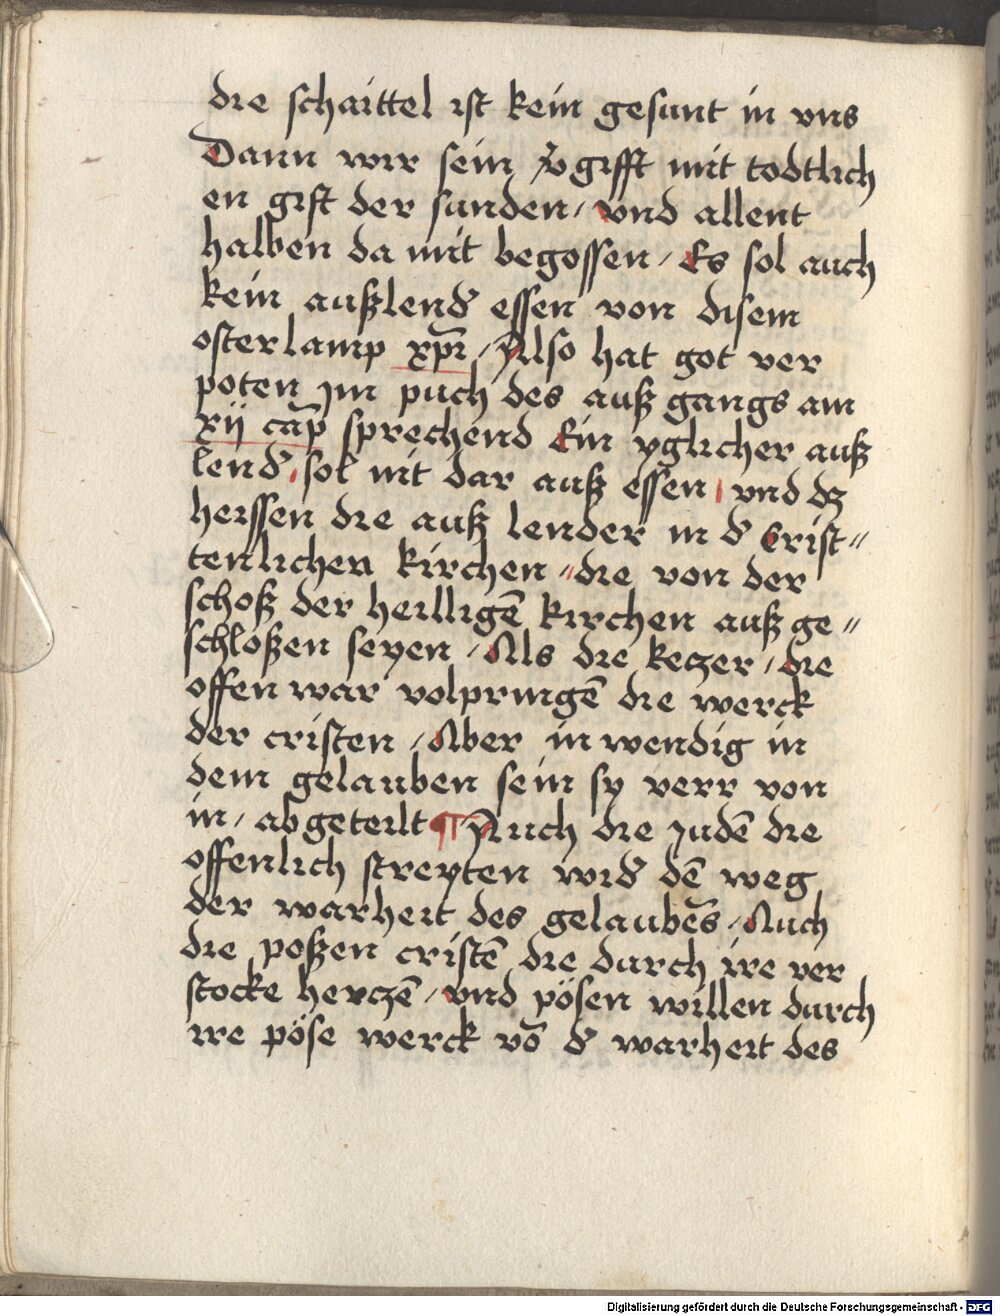 die schaittel ist kein gesunt in vns
Dann wir sein v̄gifft mit todtlich
en gift der sunden / vnd allent
halben da mit begossen / Es sol auch
kein außlend̄ essen von disem
osterlamp xp̄i / Also hat got ver
poten im puch des auß gangs am
xij cap̄ sprechend Ein yglicher auß
lend̄ sol nit dar auß essen / vnd dz
heissen die auß lender in d̄ Crist〃
tenlichen kirchen 〃 die von der
schoß der heilligē kirchen auß ge〃
schloßen seyen / Als die keczer / die
offen war volpringē die werck
der cristen / Aber in wendig in
dem gelauben sein sy verr von
in / abgeteilt ¶ Auch die Judē die
offenlich streyten wid̄ dē weg
der warheit des gelaubēs / Auch
die poßen cristē die durch ire ver
stocke herczē / vnd pösen willen durch
ire pöse werck vō d̄ warheit des
Digitalisierung gefördert durch die Deutsche Forschungsgemeinschaft - DFG